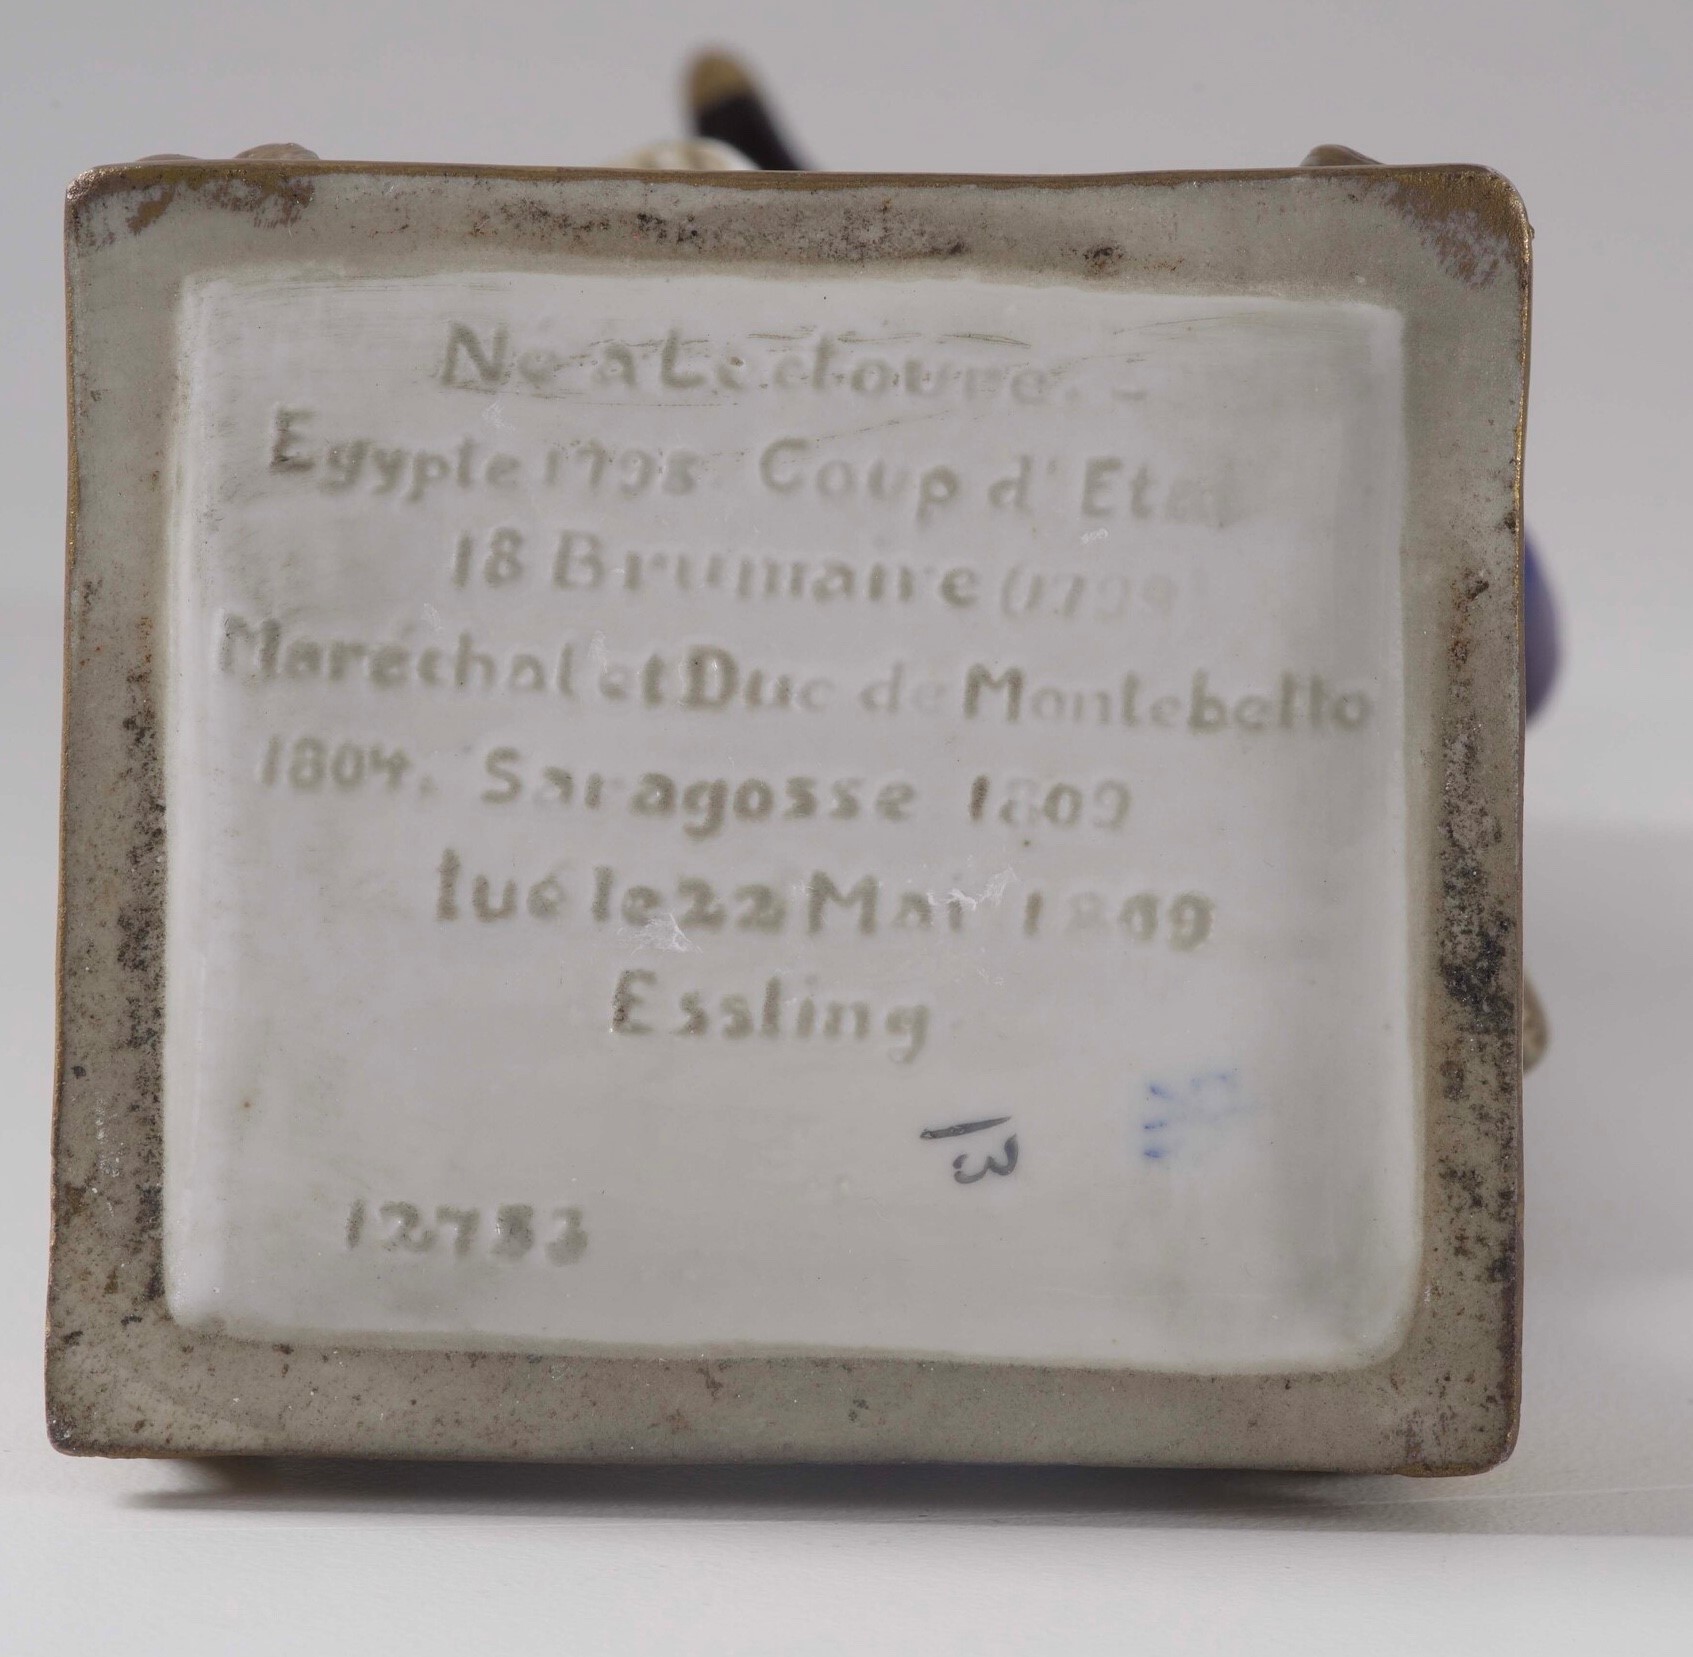 Né à Lectoure. -
Egypte 1798 Coup d'Etat
18 Brumaire (1799
Maréchal et Duc de Montebello
1804. Saragosse 1809
tué le 22 Mai 1809
Essling
13
12733